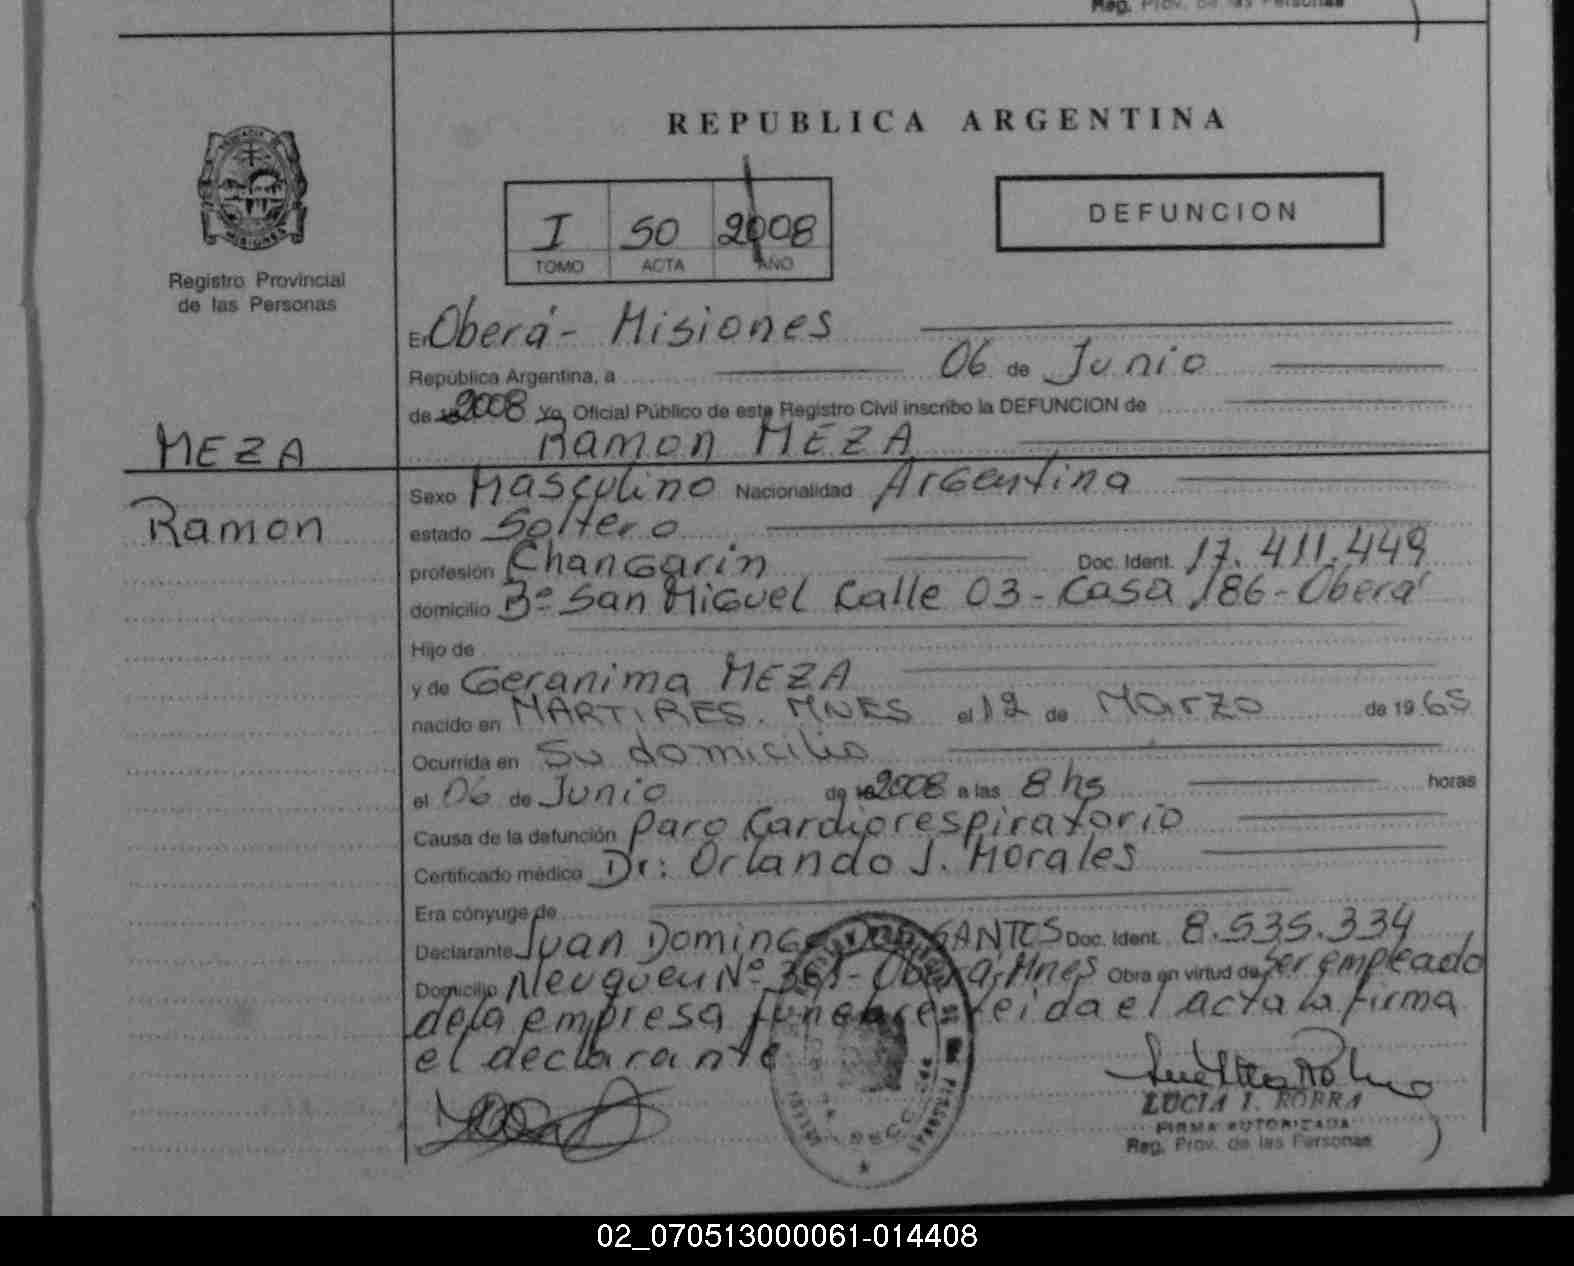 Reg. Prov. de las Personas
REPUBLICA ARGENTINA
I 50 2008
TOMO ACTA AÑO
DEFUNCION
MISIONES
Registro Provincial
de las Personas
En Oberá - Misiones
República Argentina, a 06 de Junio
de 2008 Yo, Oficial Público de este Registro Civil inscribo la DEFUNCION de
MEZA
Ramon MEZA
Ramon
Sexo Masculino Nacionalidad Argentina
estado Soltero
profesión Changarin Doc. Ident. 17.411.449
domicilio Bº San Miguel Calle 03 - Casa 186 - Oberá
Hijo de
y de Geranima MEZA
nacido en MARTIRES. MNES el 12 de Marzo de 1965
Ocurrida en Su domicilio
el 06 de Junio de 2008 a las 8 hs horas
Causa de la defunción Paro Cardiorespiratorio
Certificado médico Dr: Orlando J. Morales
Era cónyuge de
Declarante Juan Domingo Dos SANTOS Doc. Ident. 8.535.334
Domicilio Neuquen Nº 361 - Oberá, Mnes Obra en virtud de Ser empleado
dela empresa funebre leida el acta la firma
el declarante
LUCIA I. ROBRA
FIRMA AUTORIZADA
Reg. Prov. de las Personas
02_070513000061-014408